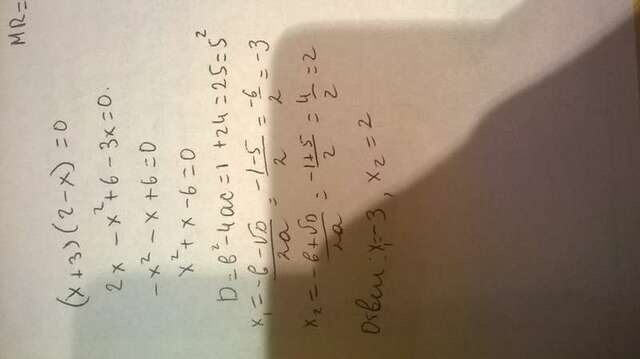 MR=
(x+3)(2-x)=0
2x-x²+6-3x=0.
-x²-x+6=0
x²+x-6=0
D=b²-4ac=1+24=25=5²
x₁=\frac{-b-√D}{2a}=\frac{-1-5}{2}=\frac{-6}{2}=-3
x₂=\frac{-b+√D}{2a}=\frac{-1+5}{2}=\frac{4}{2}=2
Ответ: x₁=-3, x₂=2